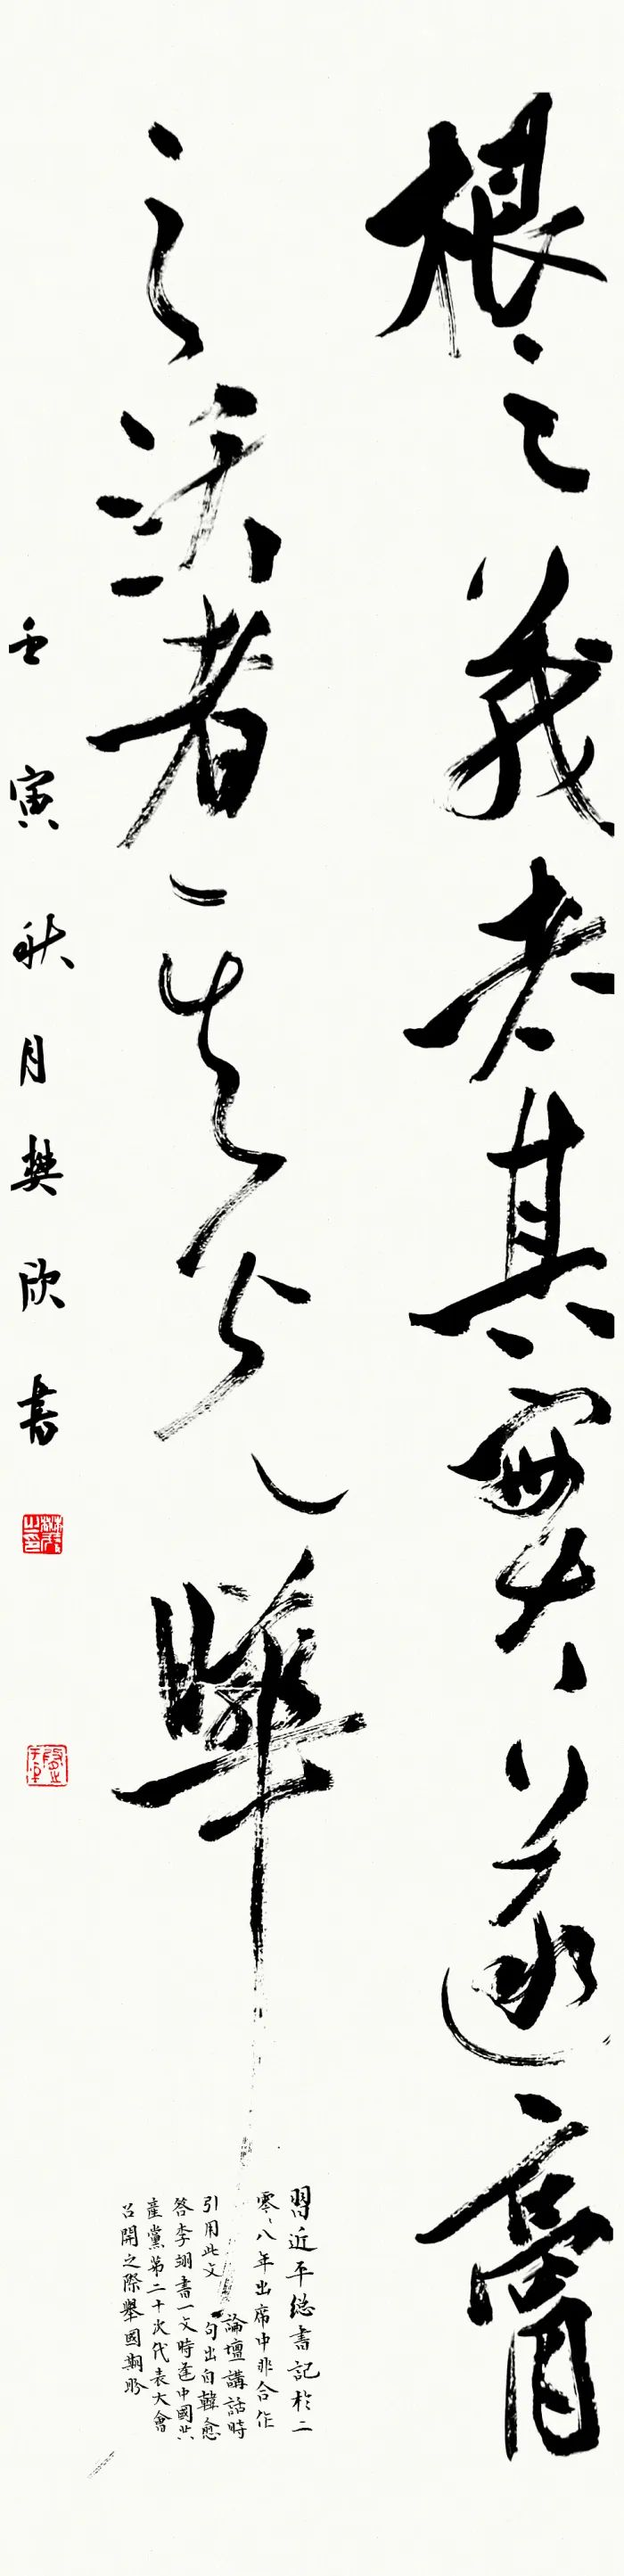 根之茂者其實遂膏
之沃者其光曄
習近平總書記於二
零一八年出席中非合作
論壇講話時
引用此文 句出自韓愈
答李翊書一文時逢中國共
產黨第二十次代表大會
召開之際舉國期盼
壬寅秋月樊欣書